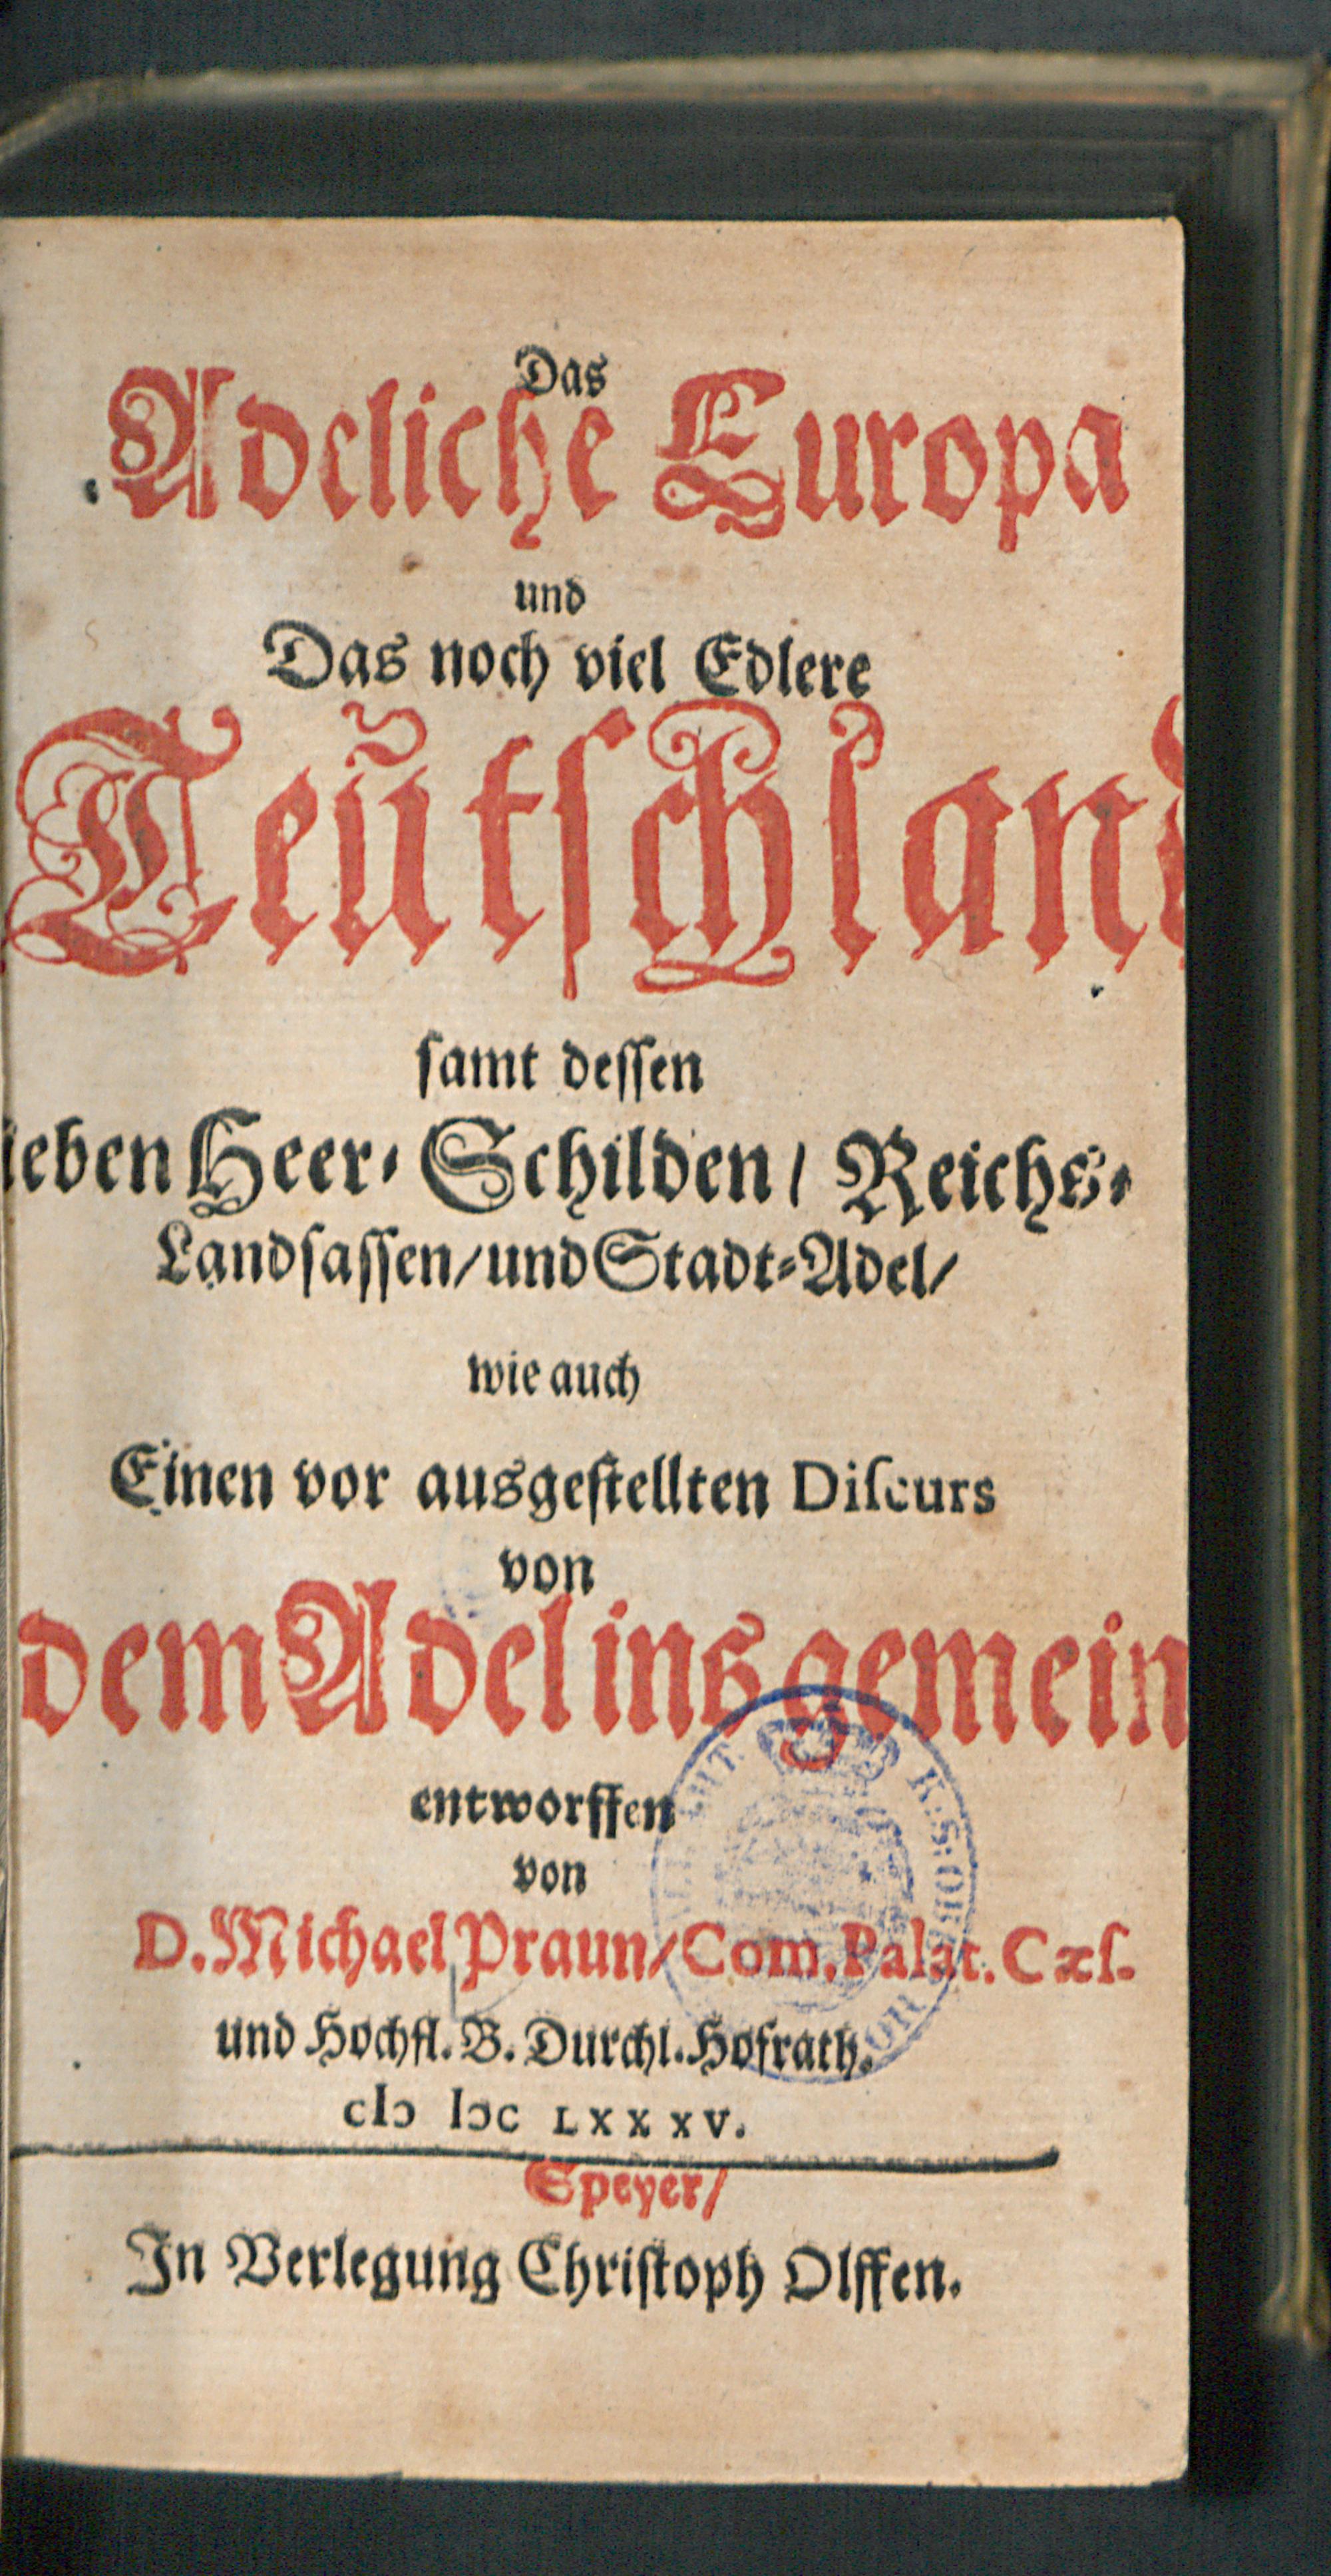 Das
Adeliche Europa
und
Das noch viel Edlere
Teutschland
samt dessen
ieben Heer- Schilden/ Reichs-
Landsassen/ und Stadt-Adel/
wie auch
Einen vor ausgestellten Discurs
von
dem Adel ins gemein
entworffen
von
D. Michael Praun/ Com. Palat. Cæs.
und Hochfl. B. Durchl. Hofrath.
cIɔ Iɔc LXXXV.
Speyer/
In Verlegung Christoph Olffen.